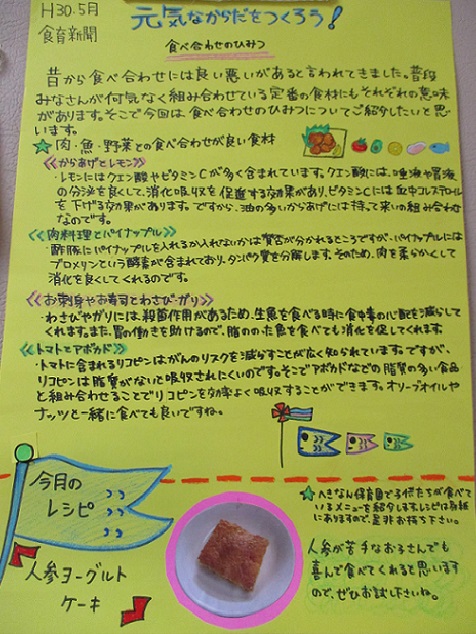 H30.5月
食育新聞
元気なからだをつくろう!
食べ合わせのひみつ
昔から食べ合わせには良い悪いがあると言われてきました。普段
みなさんが何気なく組み合わせている定番の食材にもそれぞれの意味
があります。そこで今回は食べ合わせのひみつについてご紹介したいと思
います。
☆肉・魚・野菜との食べ合わせが良い食材
≪からあげとレモン≫
・レモンにはクエン酸やビタミンCが多く含まれています。クエン酸には、唾液や胃液
の分泌を良くして、消化吸収を促進する効果があり、ビタミンCには血中コレステロール
を下げる効果があります。ですから、油の多いからあげには持って来いの組み合わせ
なのです。
≪肉料理とパイナップル≫
・酢豚にパイナップルを入れるか入れないかは賛否が分かれるところですが、パイナップルには
ブロメリンという酵素が含まれており、タンパク質を分解します。そのため、肉を柔らかくして
消化を良くしてくれるのです。
≪お刺身やお寿司とわさび・ガリ≫
・わさびやガリには、殺菌作用があるため、生魚を食べる時に食中毒の心配を減らして
くれます。また、胃の働きを助けるので、脂ののった魚を食べても消化を促してくれます
≪トマトとアボカド≫
・トマトに含まれるリコピンはがんのリスクを減らすことが広く知られています。ですが、
リコピンは脂質がないと吸収されにくいのです。そこでアボカドなどの脂質の多い食品
と組み合わせることでリコピンを効率よく吸収することができます。オリーブオイルや
ナッツと一緒に食べても良いですね。
今月の
レシピ
人参ヨーグルト
ケーキ
☆へきなん保育園で子供たちが食べて
いるメニューを紹介します。レシピは別紙
にありますので、是非お持ち下さい。
人参が苦手なお子さんでも
喜んで食べてくれると思います
ので、ぜひお試し下さいね。